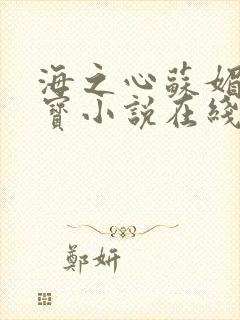 海之心蘇媚
寶小說在綫
鄭妍